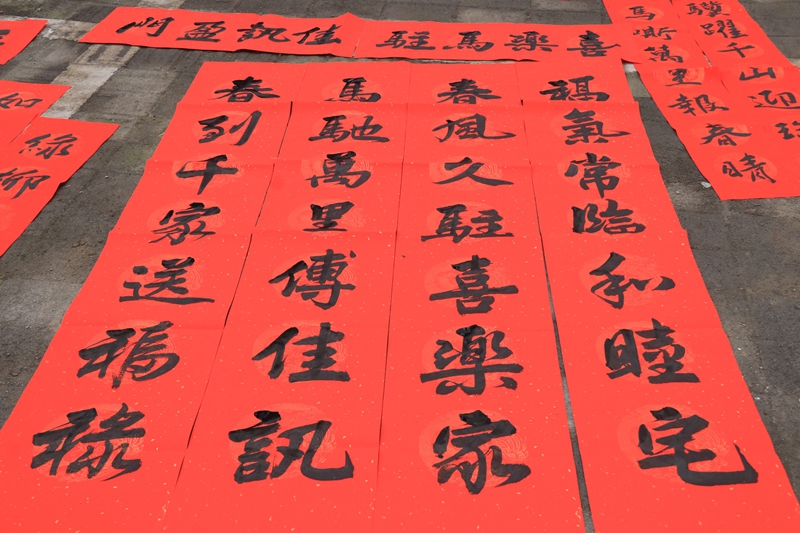 驥躍千山迎
馬嘶萬里報春晴
喜樂馬駐
佳訊盈門
福氣常臨和睦宅
春風久駐喜樂家
馬馳萬里傳佳訊
春到千家送福祿
如
綠
柳